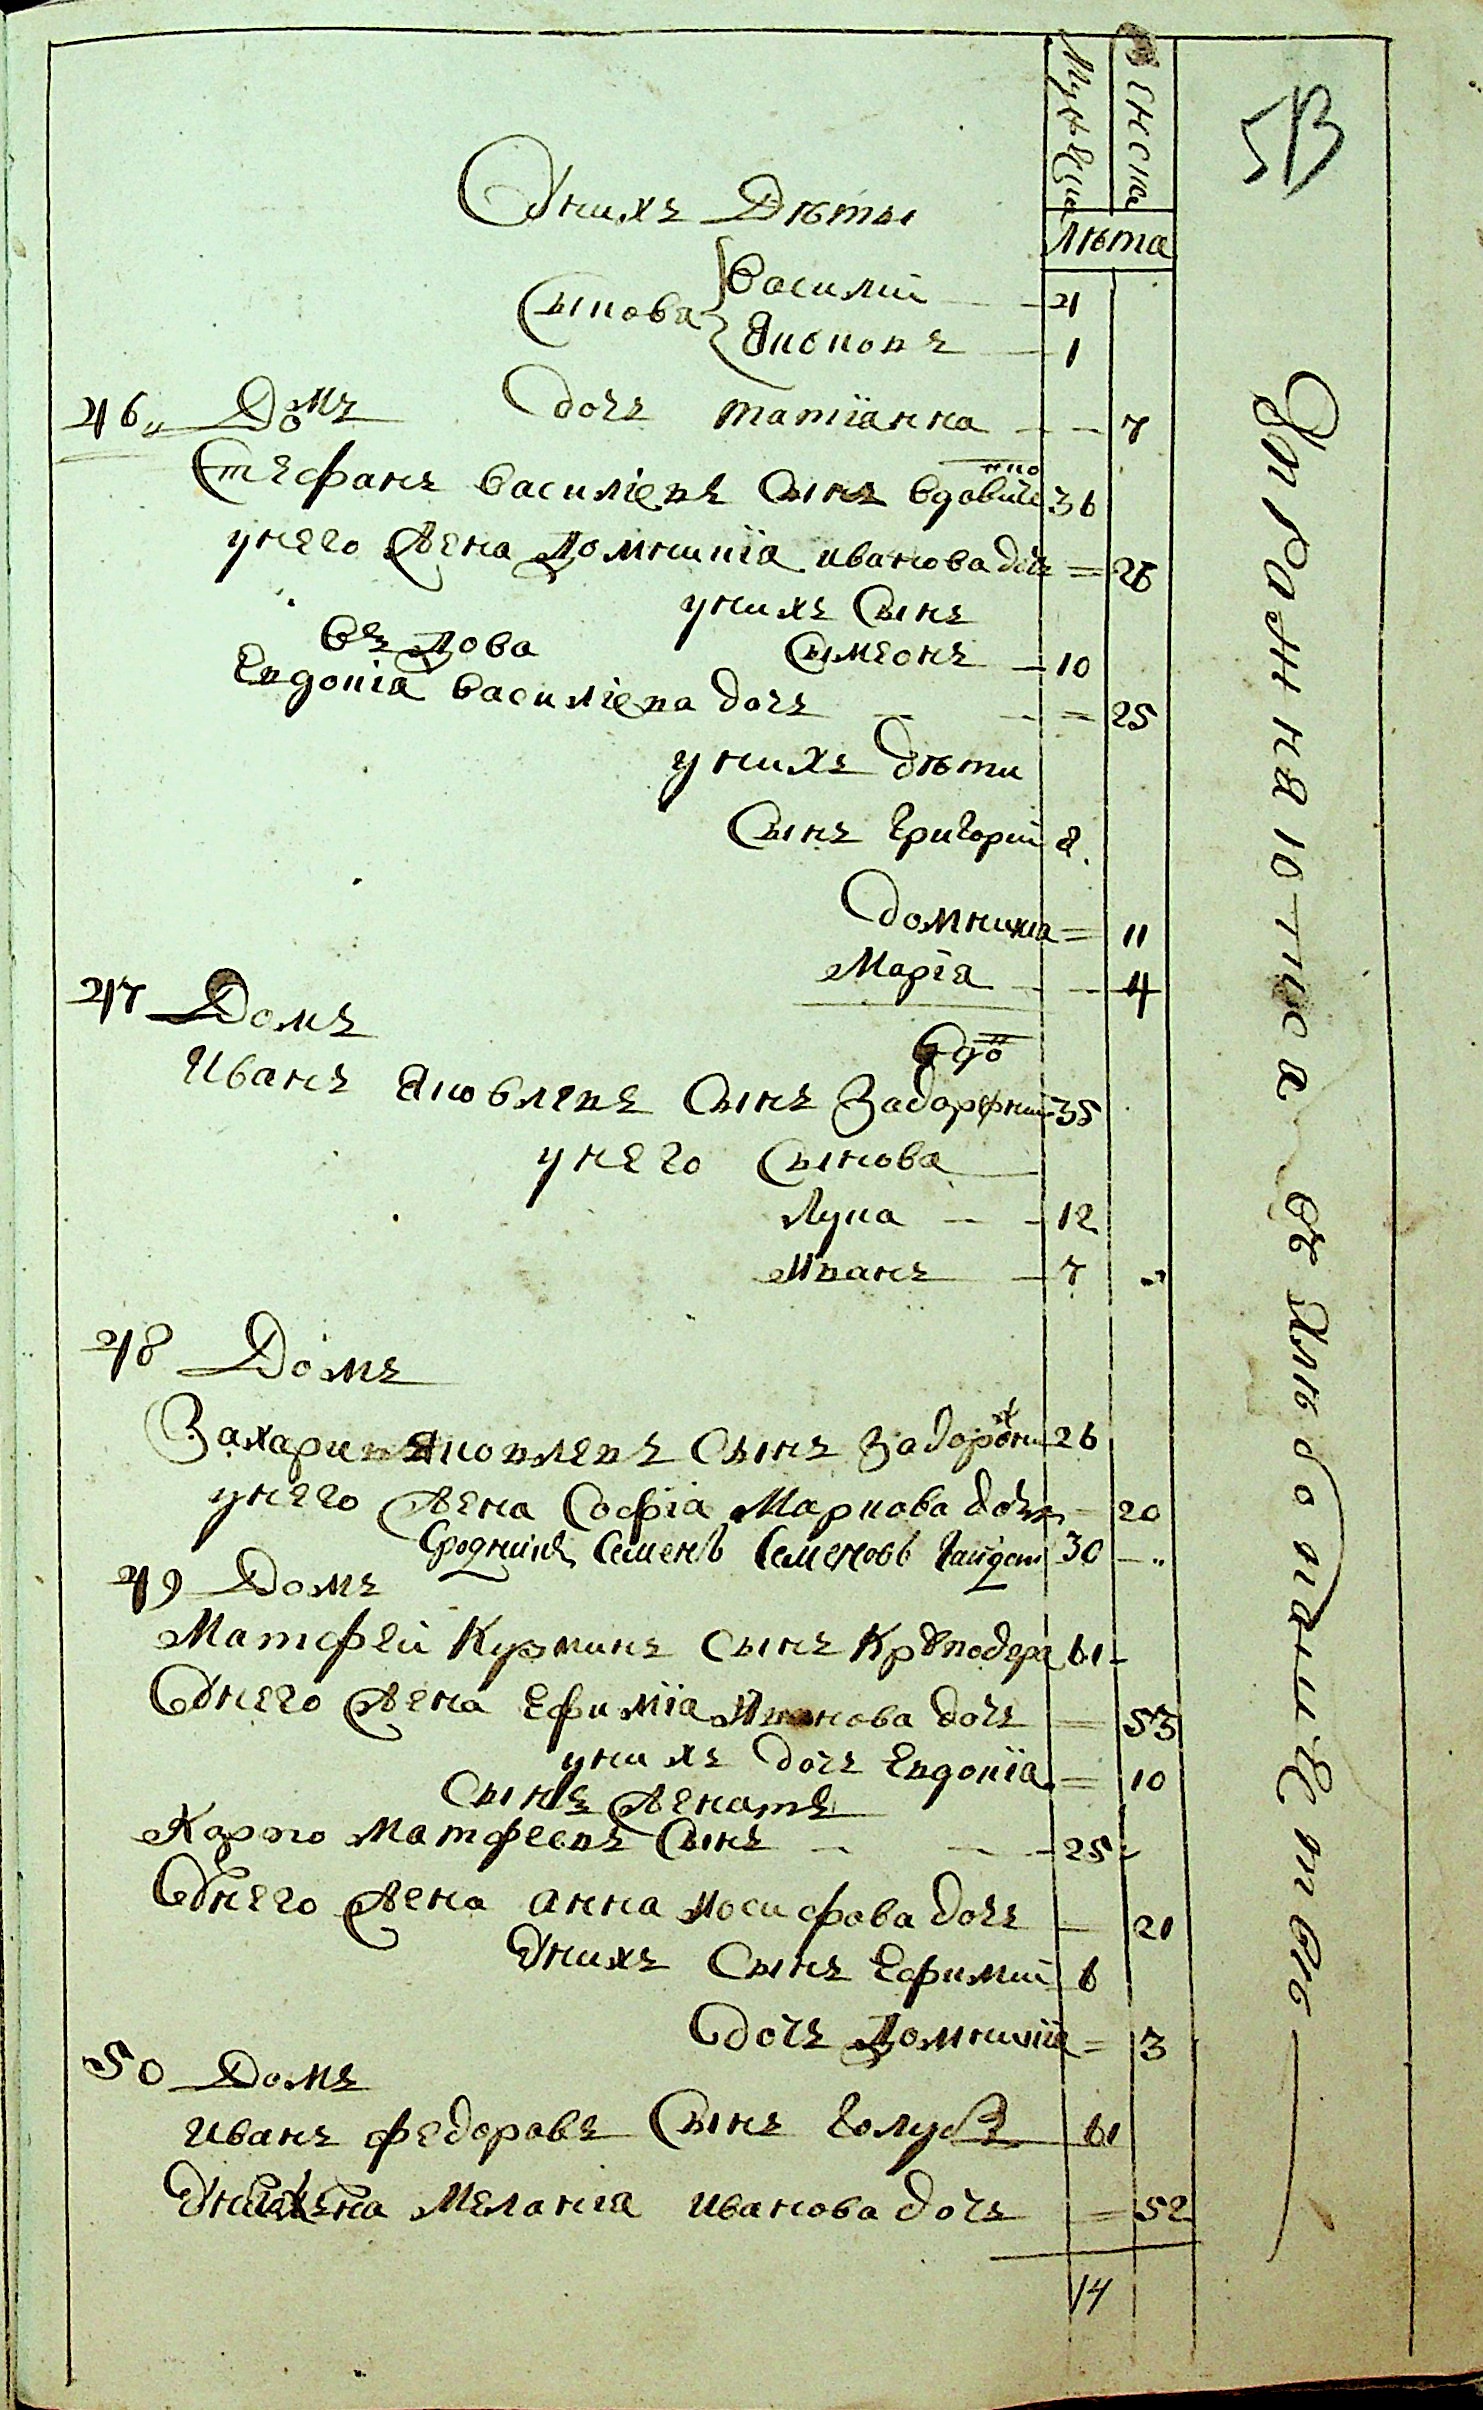 5В
Мужеска
Женска
Лѣта
Унихъ Дѣты
Сынова Василий 21
Яковъ 1
46 Домъ дочъ татїанна 7
Стефанъ василіевъ сынъ 36
унего жена Домникїа иванова дочъ 26
унихъ Сынъ
Сымеонъ 10
Вдова
Евдокіа василіева дочъ 25
унихъ дѣти
Сынъ Григорий 8
домникиа 11
Маріа 4
47 Домъ
вдо
Иванъ Яковлевъ Сынъ Задорожний 35
унего Сынова
Лука 12
Иванъ 7
48 Домъ
Захарий Яковлевъ Сынъ Задорожни 26
унего жена Софіа Маркова дочъ 20
Сродникъ Семенъ Семеновъ 30
49 Домъ
Матфей Кузминъ Сынъ 61
Унего жена Ефимїа Иванова дочъ 53
унихъ дочъ Евдокїа 10
Сынъ Женатъ
Карпо Матфеевъ Сынъ 25
Унего жена анна иосифова дочъ 21
Унихъ Сынъ Ефимий 6
дочъ Домникїа 3
50 Домъ
Иванъ федоровъ Сынъ Голубъ 61
жена Меланіа иванова дочъ 52
14